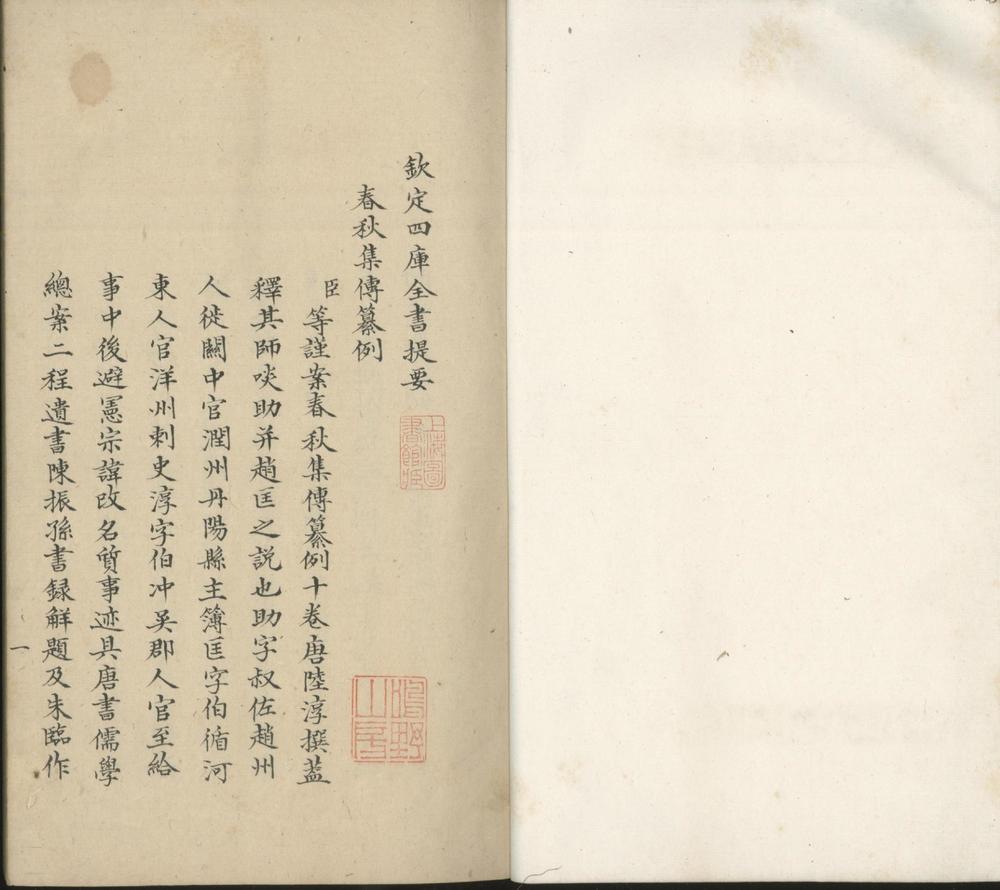 欽定四庫全書提要
春秋集傳纂例
臣等謹案春秋集傳纂例十卷唐陸淳撰葢
釋其師啖助并趙匡之説也助字叔佐趙州
人徙關中官潤州丹陽縣主簿匡字伯循河
東人官洋州刺史淳字伯冲吳郡人官至給
事中後避憲宗諱改名質事迹具唐書儒學
總案二程遺書陳振孫書録解題及朱臨作
一
上海圖書館藏